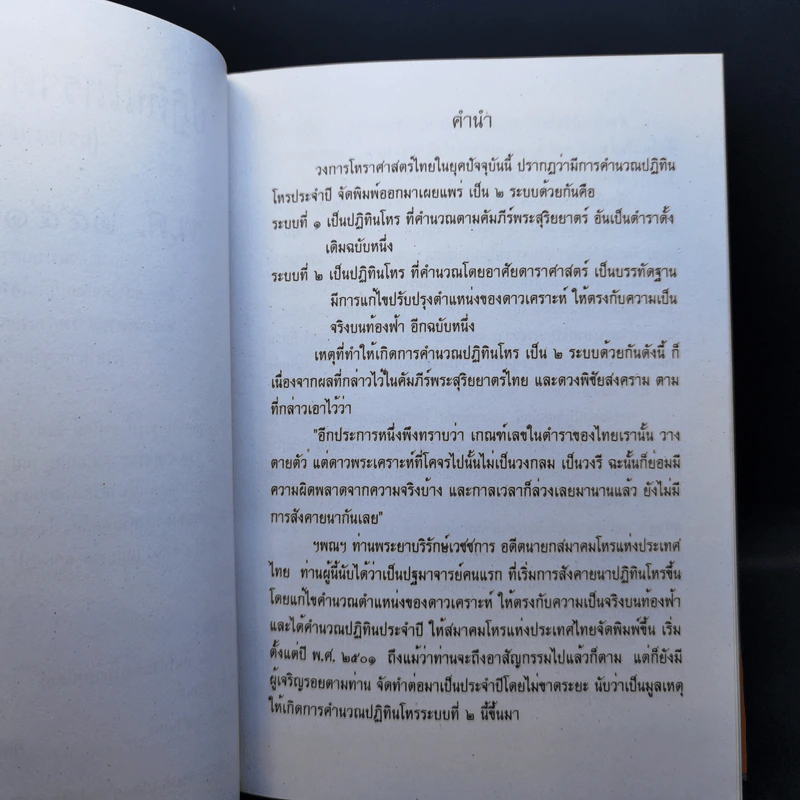 คำนำ
วงการโหราศาสตร์ไทยในยุคปัจจุบันนี้ ปรากฏว่ามีการคำนวณปฏิทิน
โหรประจำปี จัดพิมพ์ออกมาเผยแพร่ เป็น ๒ ระบบด้วยกันคือ
ระบบที่ ๑ เป็นปฏิทินโหร ที่คำนวณตามคัมภีร์พระสุริยยาตร์ อันเป็นตำราดั้ง
เดิมฉบับหนึ่ง
ระบบที่ ๒ เป็นปฏิทินโหร ที่คำนวณโดยอาศัยดาราศาสตร์ เป็นบรรทัดฐาน
มีการแก้ไขปรับปรุงตำแหน่งของดาวเคราะห์ ให้ตรงกับความเป็น
จริงบนท้องฟ้า อีกฉบับหนึ่ง
เหตุที่ทำให้เกิดการคำนวณปฏิทินโหร เป็น ๒ ระบบด้วยกันดังนี้ ก็
เนื่องจากผลที่กล่าวไว้ในคัมภีร์พระสุริยยาตร์ไทย และดวงพิชัยสงคราม ตาม
ที่กล่าวเอาไว้ว่า
"อีกประการหนึ่งพึงทราบว่า เกณฑ์เลขในตำราของไทยเรานั้น วาง
ตายตัว แต่ดาวพระเคราะห์ที่โคจรไปนั้นไม่เป็นวงกลม เป็นวงรี ฉะนั้นก็ย่อมมี
ความผิดพลาดจากความจริงบ้าง และกาลเวลาก็ล่วงเลยมานานแล้ว ยังไม่มี
การสังคายนากันเลย"
ฯพณฯ ท่านพระยาบริรักษ์เวชชการ อดีตนายกสมาคมโหรแห่งประเทศ
ไทย ท่านผู้นี้นับได้ว่าเป็นปฐมาจารย์คนแรก ที่เริ่มการสังคายนาปฏิทินโหรขึ้น
โดยแก้ไขคำนวณตำแหน่งของดาวเคราะห์ ให้ตรงกับความเป็นจริงบนท้องฟ้า
และได้คำนวณปฏิทินประจำปี ให้สมาคมโหรแห่งประเทศไทยจัดพิมพ์ขึ้น เริ่ม
ตั้งแต่ปี พ.ศ. ๒๕๐๑ ถึงแม้ว่าท่านจะถึงอาสัญกรรมไปแล้วก็ตาม แต่ก็ยังมี
ผู้เจริญรอยตามท่าน จัดทำต่อมาเป็นประจำปีโดยไม่ขาดระยะ นับว่าเป็นมูลเหตุ
ให้เกิดการคำนวณปฏิทินโหรระบบที่ ๒ นี้ขึ้นมา